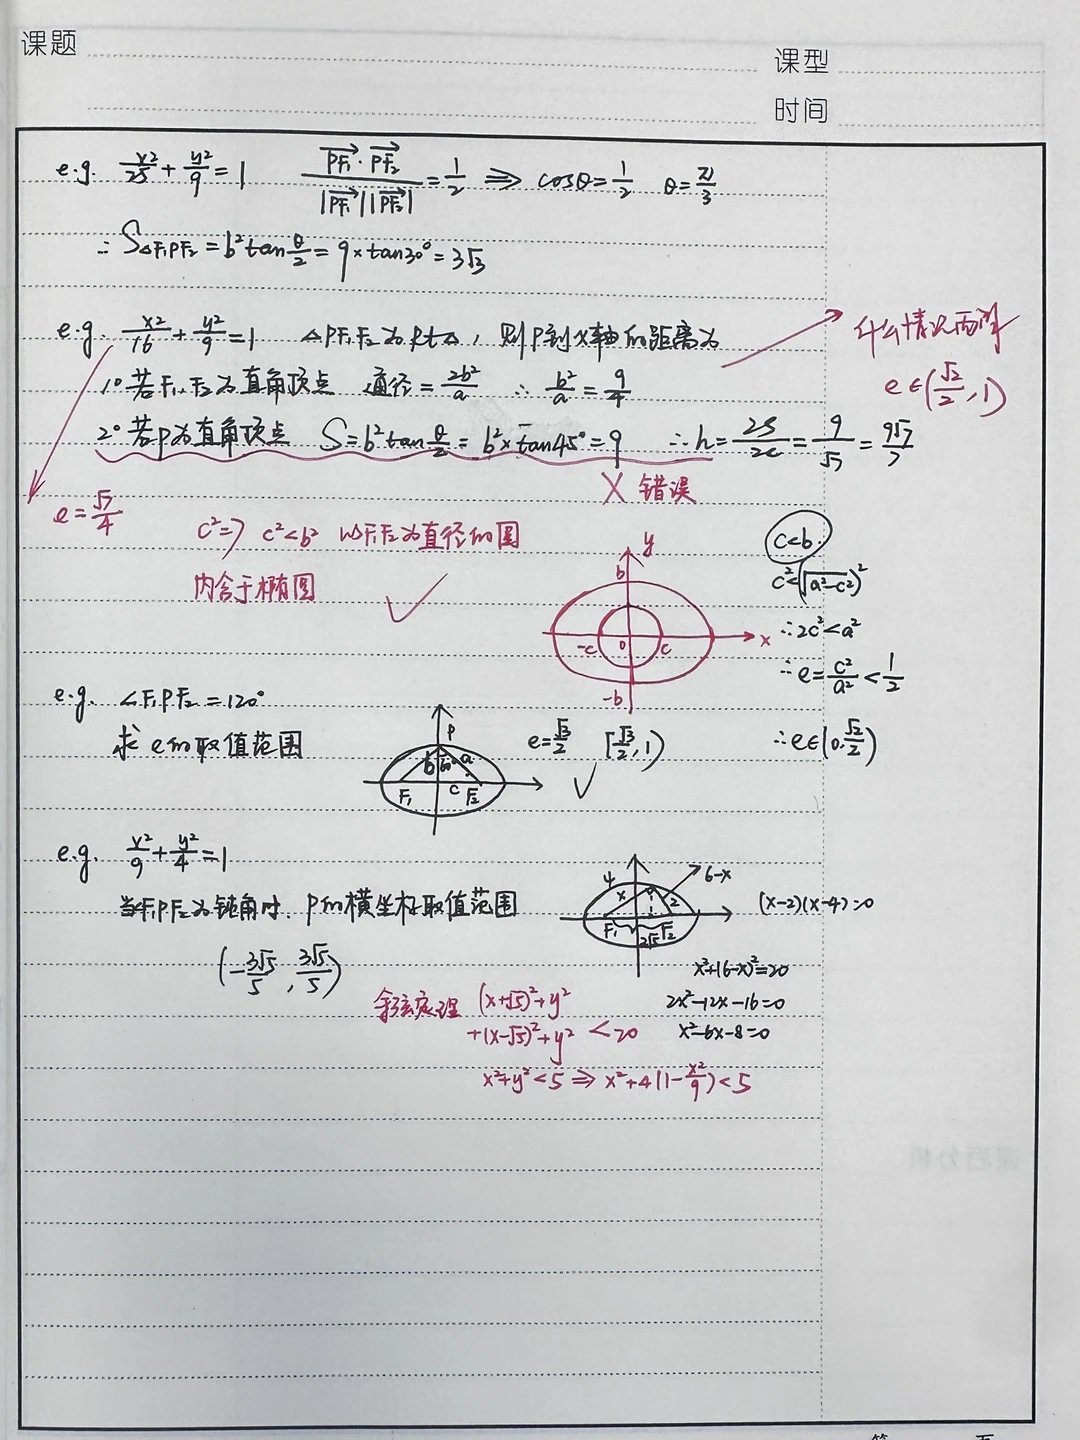 课题
课型
时间
e.g. x²/25 + y²/9 = 1  (PF₁→·PF₂→)/(|PF₁→||PF₂→|) = 1/2 ⇒ cosθ = 1/2  θ = π/3
∴ S△F₁PF₂ = b²tan θ/2 = 9×tan30° = 3√3
e.g. x²/16 + y²/9 = 1  △PF₁F₂为Rt△, 则P到X轴的距离为
什么情况两解
1° 若F₁、F₂为直角顶点  通径 = 2b²/a  ∴ b²/a = 9/4
e∈(√2/2, 1)
2° 若P为直角顶点  S = b²tan θ/2 = b²×tan45° = 9  ∴ h = 2S/2c = 9/√7 = 9√7/7
× 错误
e = √7/4
c²=7 c²<b² 以F₁F₂为直径的圆
内含于椭圆 ✓
y
b
-c 0 c x
-b
c<b.
c²<(√a²-c²)²
∴2c²<a²
∴e = c²/a² < 1/2
∴e∈(0, √2/2)
e.g. ∠F₁PF₂ = 120°
求e的取值范围
P
b 60° a
F₁ c F₂
e = √3/2  [√3/2, 1)
✓
e.g. x²/9 + y²/4 = 1
当∠F₁PF₂为钝角时、P的横坐标取值范围
4 x 6-x
2
F₁ F₂
2√5
(x-2)(x-4)=0
(-3√5/5, 3√5/5)
x²+(6-x)²=20
2x²-12x-16=0
x²-6x-8=0
余弦定理 (x+√5)²+y²
+(x-√5)²+y² < 20
x²+y²<5 ⇒ x²+4(1-x²/9)<5